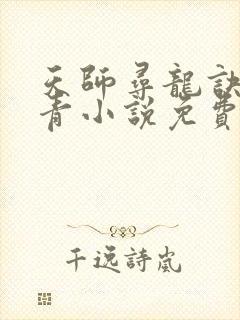 天師尋龍訣
青小說免費
千逸詩嵐